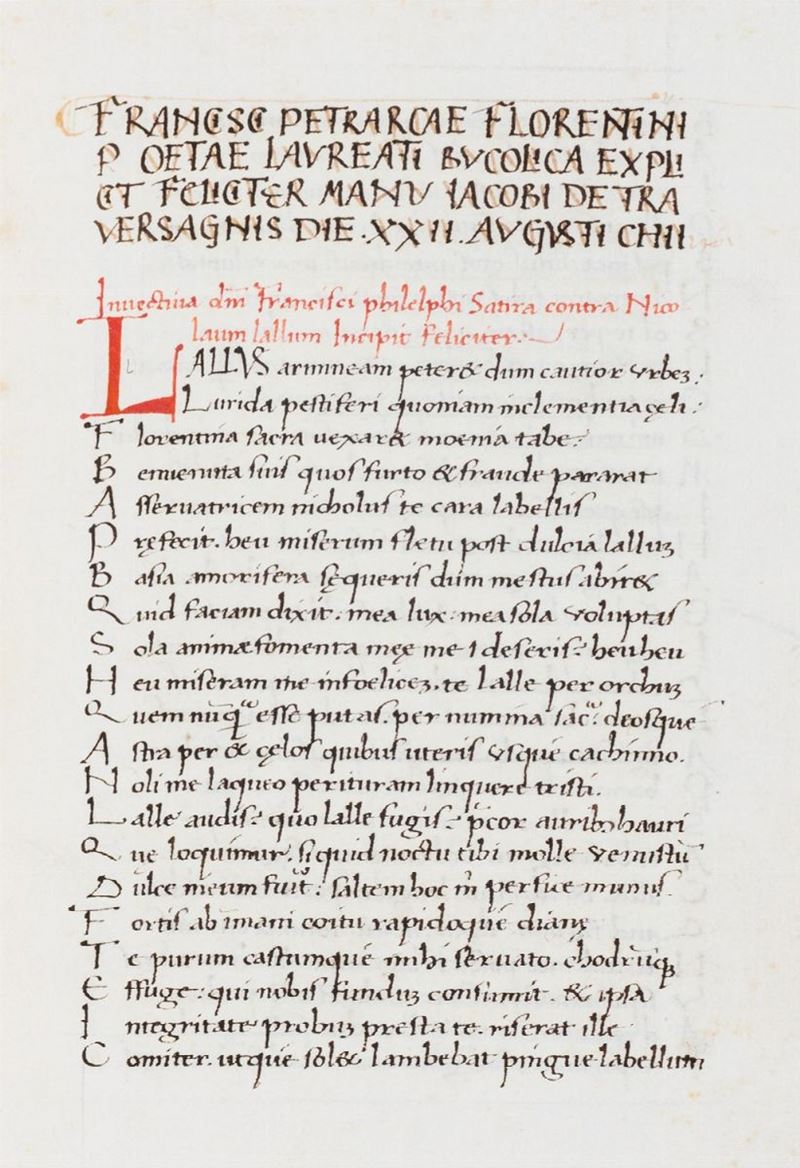 FRANCSC PETRARCAE FLORENTINI
POETAE LAVREATI BVCOLICA EXPLI
CT FELICTER MANV IACOBI DE TRA
VERSAGNIS DIE .XXII. AVGVSTI
Inuectiua dñi Francisci philelphi Satira contra Nico
laum lallum Incipit feliciter
LALLVS arimineam peter& dum cautior vrbeʒ
Lurida pestiferi quoniam inclementia cęli
Florentina sacra uexar& moenia tabe
B suis quos furto & fraude pararat
Asseruatricem nicholus te cara labellis
Pręfecit. heu miserum fletu post dulcia lalluʒ
Basia amorifera sequeris dum mestus abir&
Quid faciam dixit. mea lux. mea sola voluptas
Sola animæ fomenta meę me deseris? heu heu
Heu miseram me infoeliceʒ. te lalle per orbuʒ
Quem esse putas. per numina deosque
Astra per & cęlos quibus uteris vsque cachinno.
Noli me laqueo perituram linquere tristi.
Lalle audis? quo lalle fugis? p̄cor auribꝫ hauri
Que loquimur. siquid noctu tibi molle venustū
Dulce meum fuit? saltem hoc m̄ perfice munus
Fortis ab imani coitu rapidoque dianę
Te purum castumque mihi seruato.
Effuge. qui nobis funduʒ consumit. & ipsa
Integritate probuʒ presta te. riserat ille
Comiter. utque sol& lambebat pingue labellum